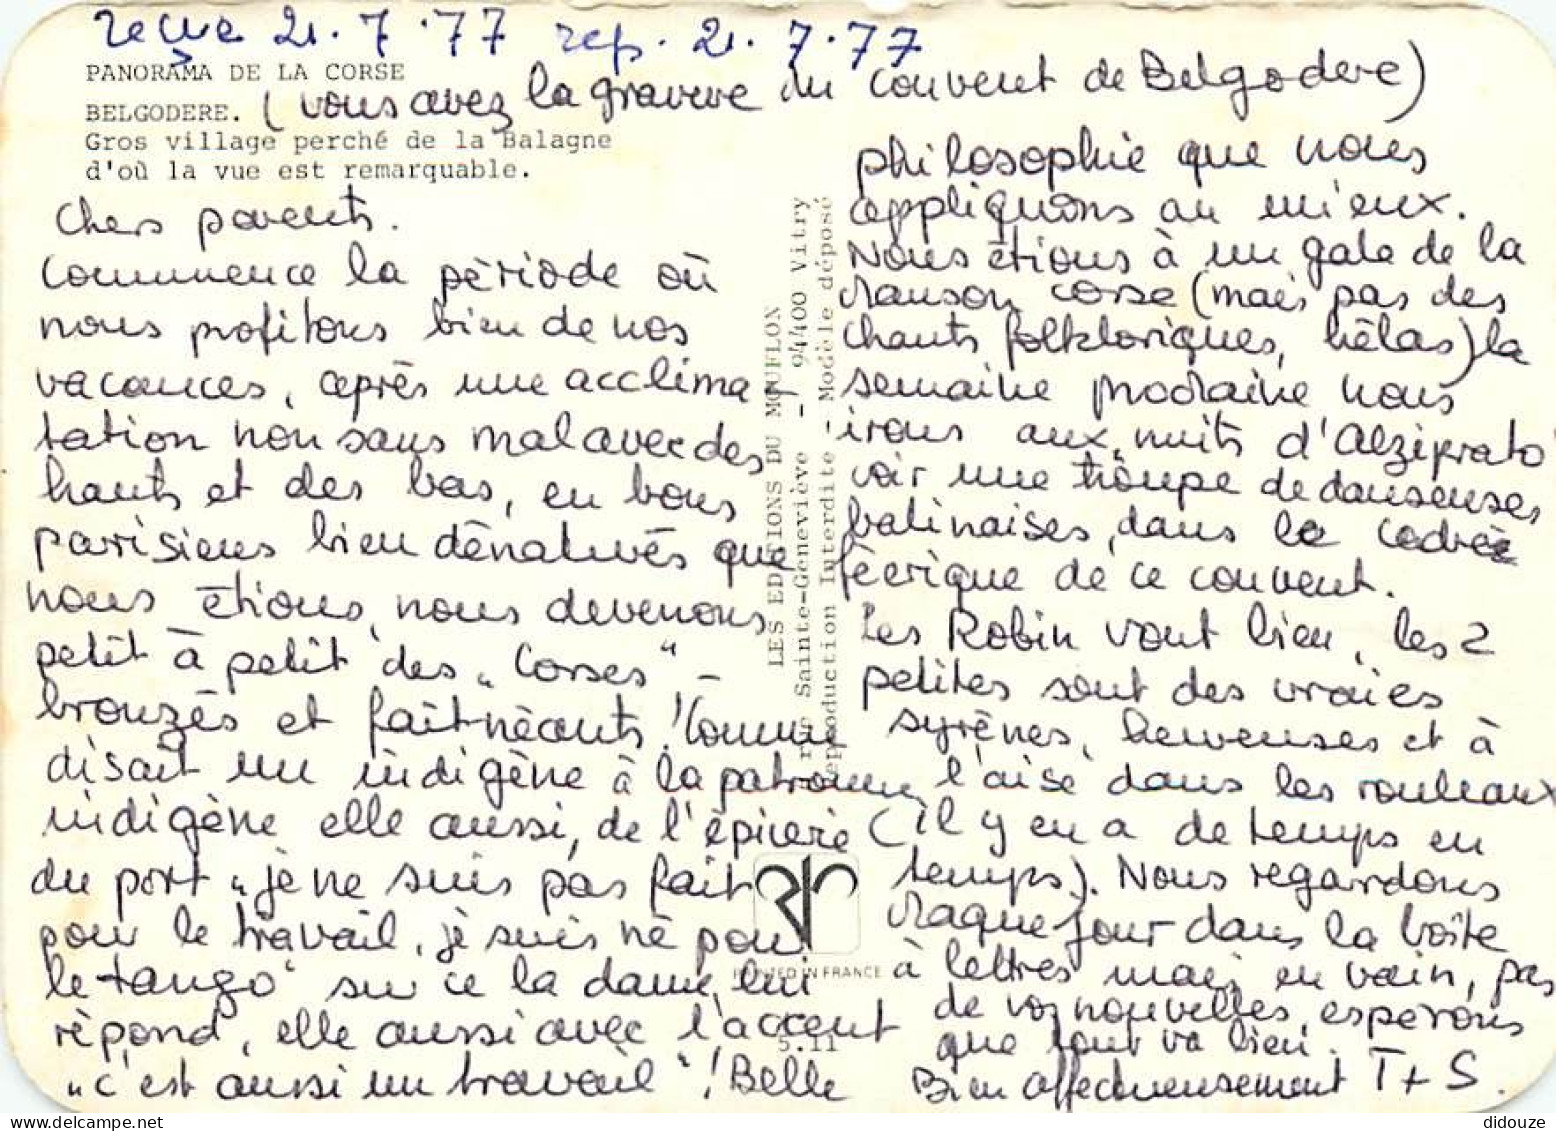 reçue 21.7.77 rep. 21.7.77
PANORAMA DE LA CORSE
BELGODERE. (vous avez la gravure du couvent de Belgodere)
Gros village perché de la Balagne
d'où la vue est remarquable.
Chers parents.
Commence la période où
nous profitons bien de nos
vacances, après une acclima
tation non sans mal avec des
hauts et des bas, en bons
parisiens bien dénaturés que
nous étions, nous devenons
petit à petit des "Corses" -
bronzés et faitnéants ! Comme
disait un indigène à la patronne,
indigène elle aussi, de l'épicerie
du port "je ne suis pas fait
pour le travail, je suis né pour
le tango" sur ce la dame lui
répond, elle aussi avec l'accent
"c'est aussi un travail" ! Belle
LES EDITIONS DU MOUFLON
rue Sainte-Geneviève - 94400 Vitry
Reproduction Interdite - Modèle déposé
PRINTED IN FRANCE
5.11
philosophie que nous
appliquons au mieux.
Nous étions à un gala de la
chanson corse (mais pas des
chants folkloriques, hélas) la
semaine prochaine nous
irons aux "nuits d'Alziprato"
voir une troupe de danseuses
balinaises, dans le cadre
féerique de ce couvent.
Les Robin vont bien, les 2
petites sont des vraies
syrènes, heureuses et à
l'aise dans les rouleaux
(il y en a de temps en
temps). Nous regardons
chaque jour dans la boîte
à lettres mais en vain, pas
de vos nouvelles, espérons
que tout va bien.
Bien affectueusement T + S.
didouze